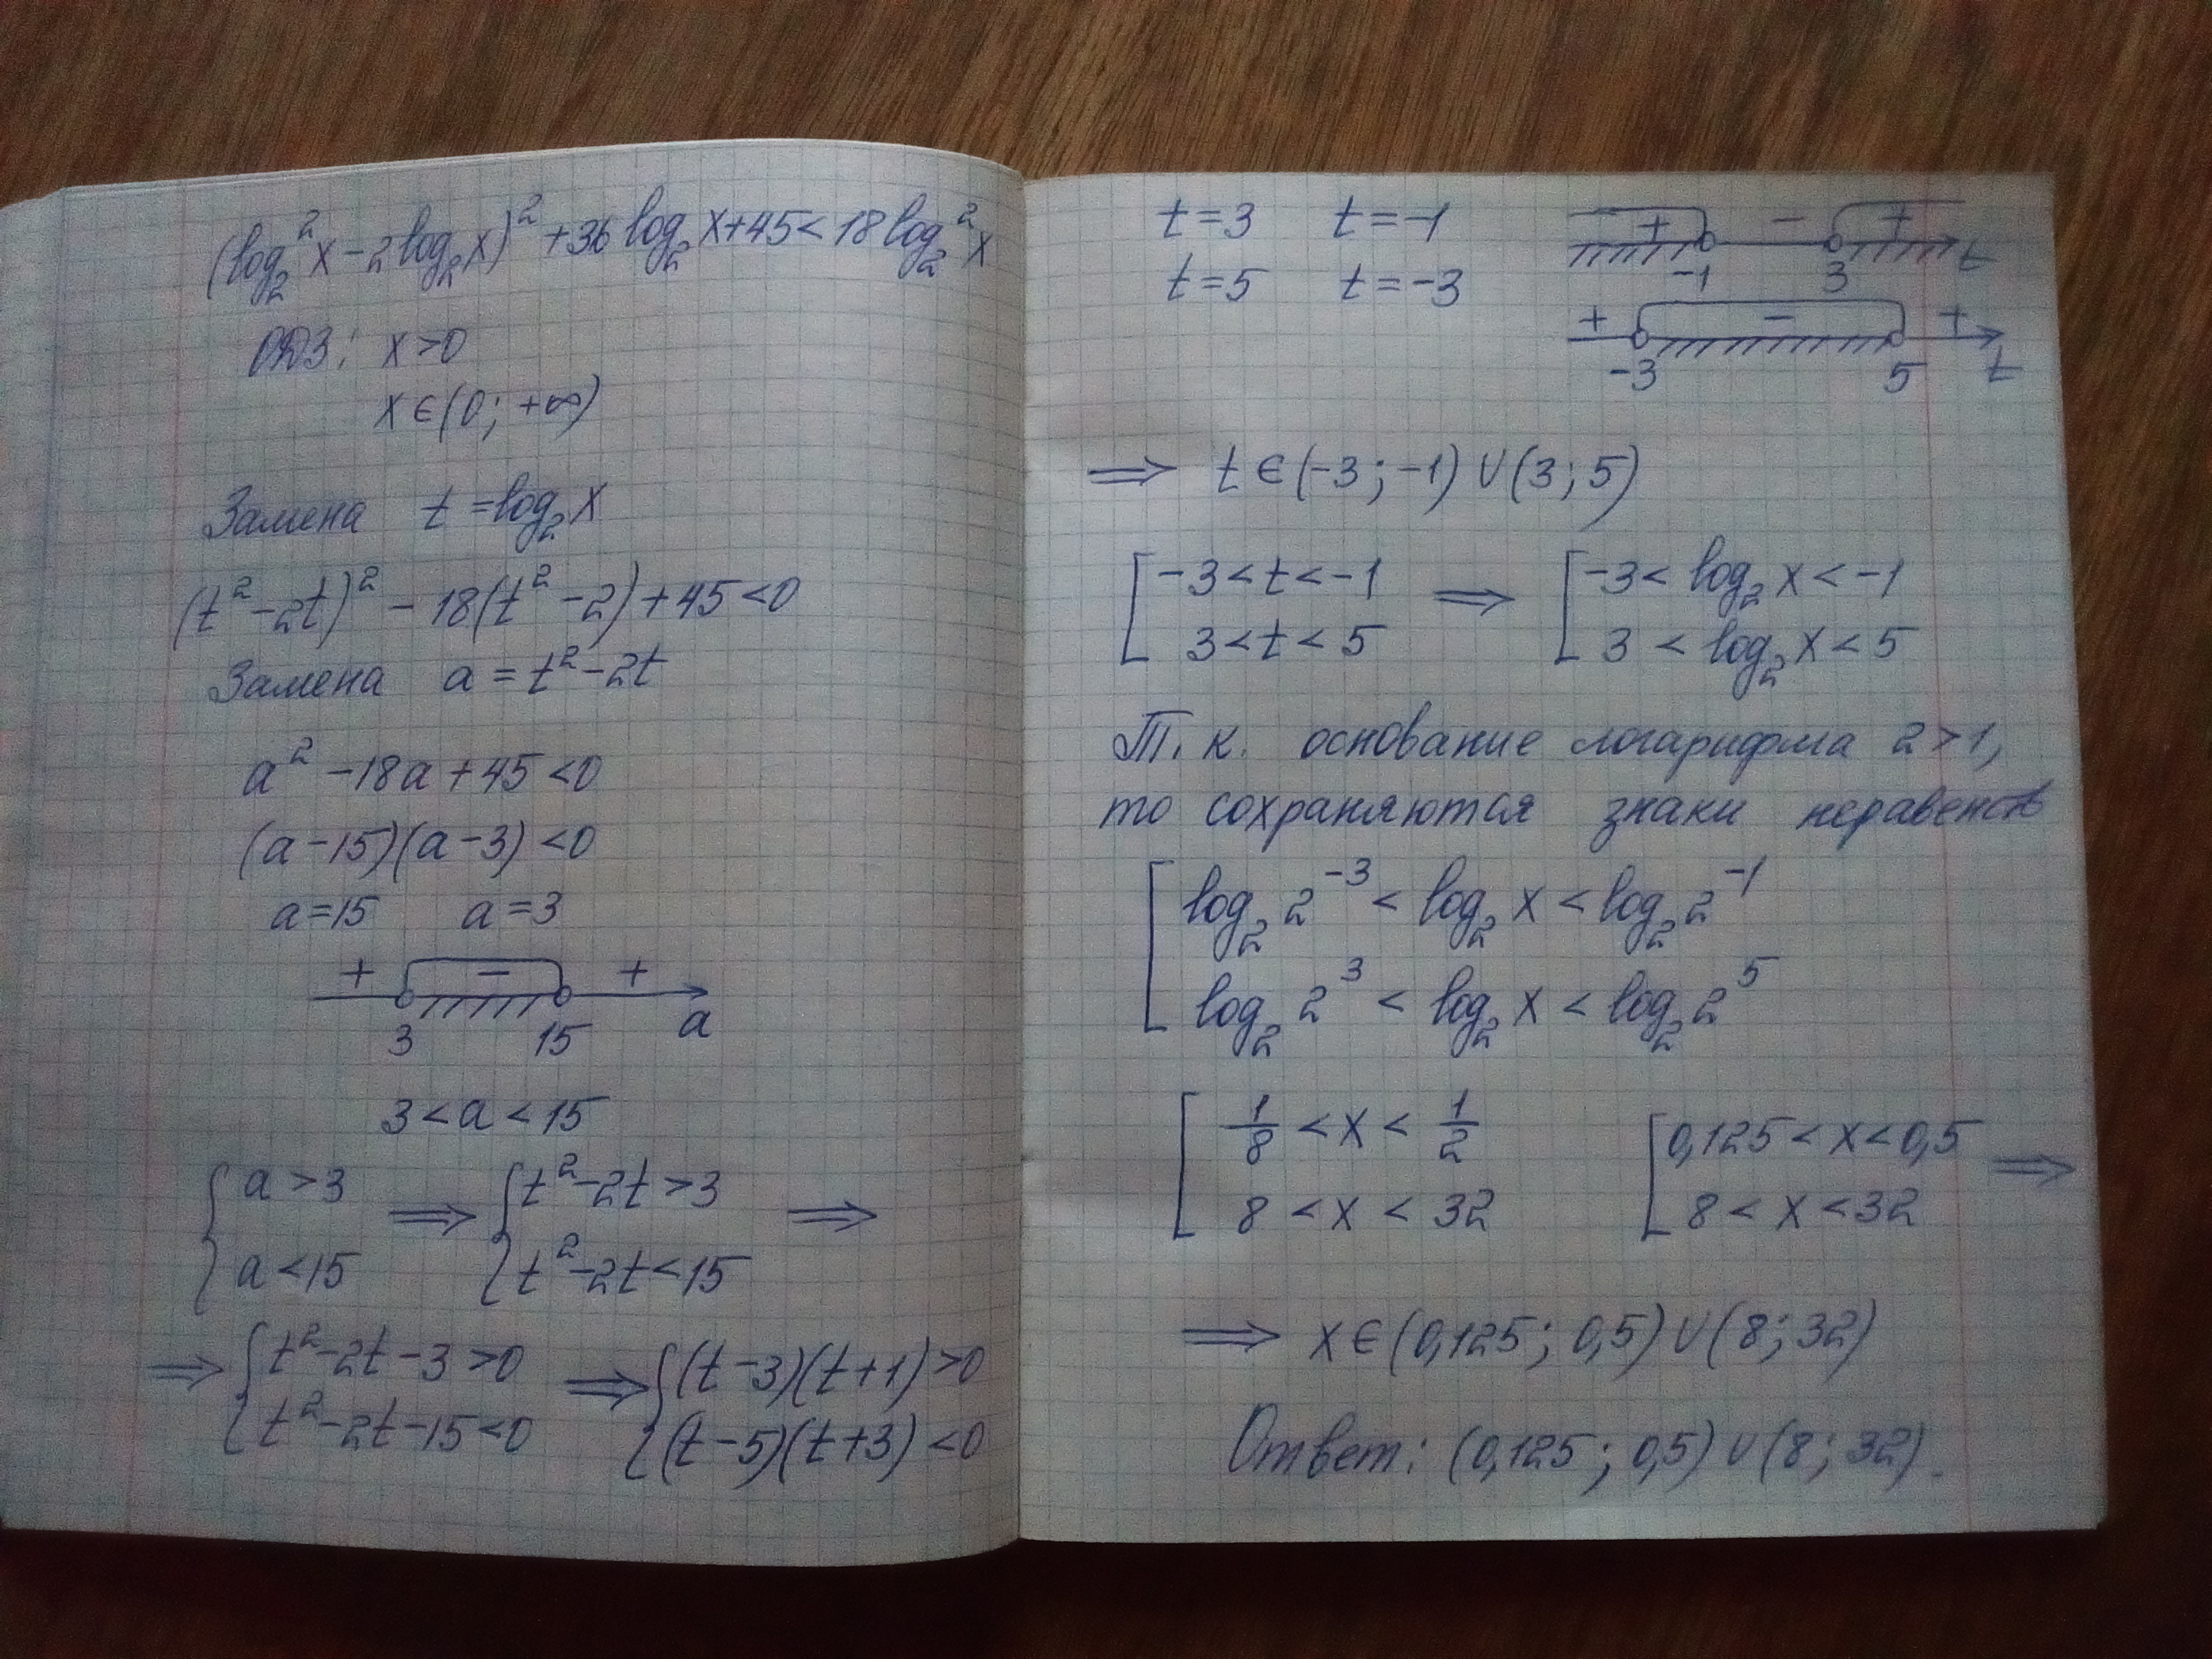 (log₂²x-2log₂x)²+36log₂x+45<18log₂²x
ОДЗ: x>0
x∈(0; +∞)
Замена t=log₂x
(t²-2t)²-18(t²-2)+45<0
Замена a=t²-2t
a²-18a+45<0
(a-15)(a-3)<0
a=15 a=3
+ - +
3 15 a
3<a<15
{ a>3 ⟹ { t²-2t>3 ⟹
a<15 t²-2t<15
⟹ { t²-2t-3>0 ⟹ { (t-3)(t+1)>0
t²-2t-15<0 (t-5)(t+3)<0
t=3 t=-1
t=5 t=-3
+ - +
-1 3 t
+ - +
-3 5 t
⟹ t∈(-3; -1)∪(3; 5)
[ -3<t<-1 ⟹ [ -3<log₂x<-1
3<t<5 3<log₂x<5
Т. к. основание логарифма 2>1,
то сохраняются знаки неравенств
[ log₂2⁻³<log₂x<log₂2⁻¹
log₂2³<log₂x<log₂2⁵
[ 1/8<x<1/2 [ 0,125<x<0,5 ⟹
8<x<32 8<x<32
⟹ x∈(0,125; 0,5)∪(8; 32)
Ответ: (0,125; 0,5)∪(8; 32).